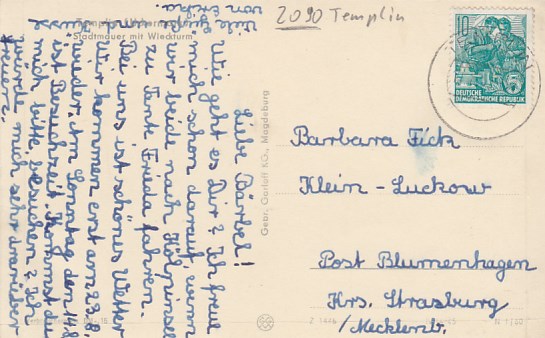 2090 Templin
Templin / Uckermark
"Stadtmauer mit Wiekturm"
Liebe Bärbel!
Wie geht es Dir? Ich freue
mich schon darauf, wenn
wir beide nach Kölpinsee
zu Tante Frida fahren.
Bei uns ist schönes Wetter
Wir kommen erst am 23.8.
wieder. Am Sonntag den 14.8
ist Besuchzeit. Kommst du
mich bitte besuchen? Ich
würde mich sehr darüber
freuen.
Viele Grüße
von
und Küsse
Gebr. Garloff KG., Magdeburg
10
DEUTSCHE
DEMOKRATISCHE REPUBLIK
Barbara Fick
Klein-Luckow
Post Blumenhagen
Krs. Strasburg
/Mecklenb.